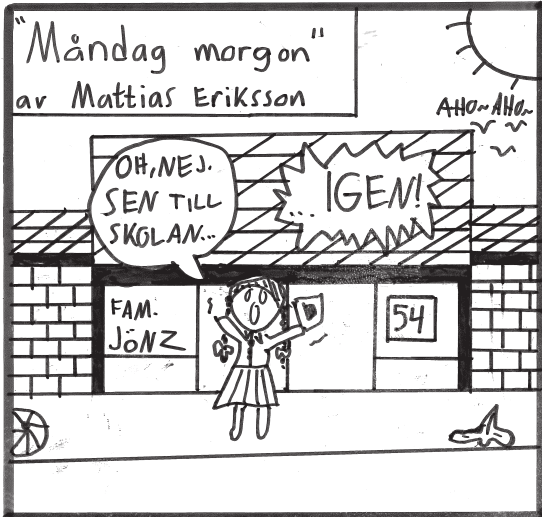 "Måndag morgon"
av Mattias Eriksson
AHO~AHO~
OH, NEJ.
SEN TILL
SKOLAN...
...IGEN!
FAM.
JÖNZ
54